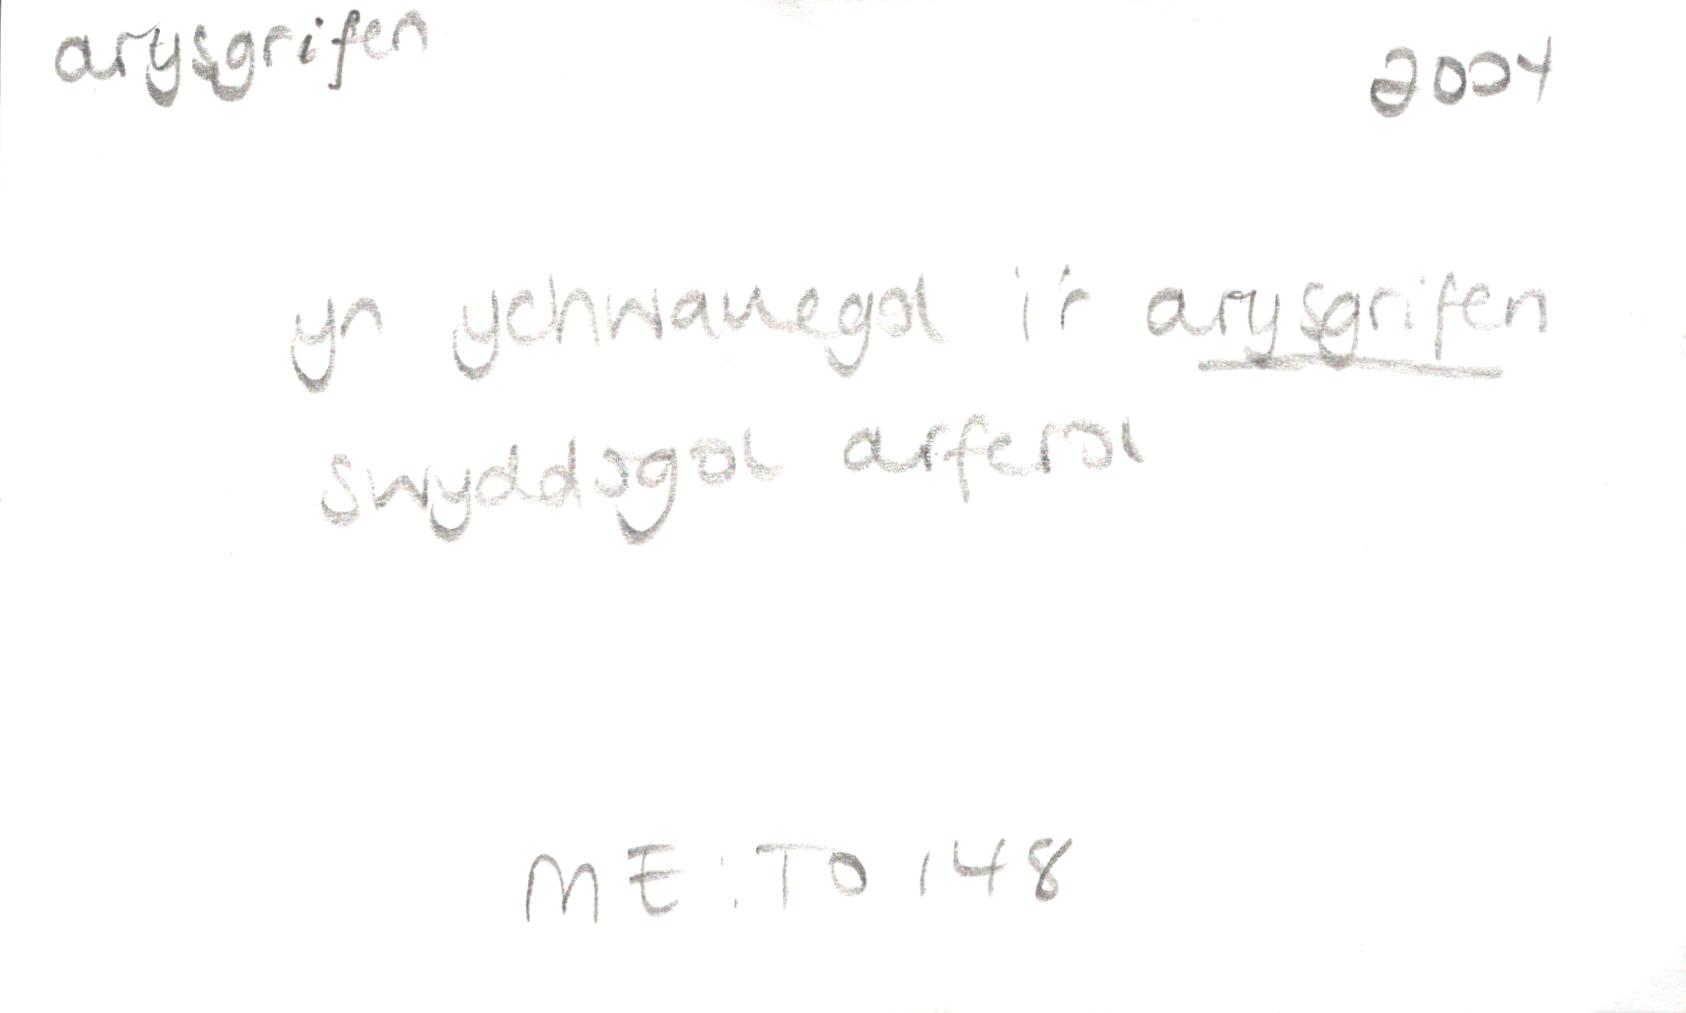 arysgrifen 2004
yn ychwanegol i'r arysgrifen
swyddogol arferol
ME:TO 148